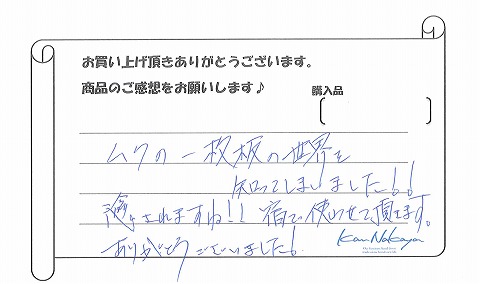 お買い上げ頂きありがとうございます。
商品のご感想をお願いします♪
購入品
ムクの一枚板の世界を
知ってしまいました！！
されますね！！宿で使わせて頂きます。
ありがとうございました！
Kan Nakaya